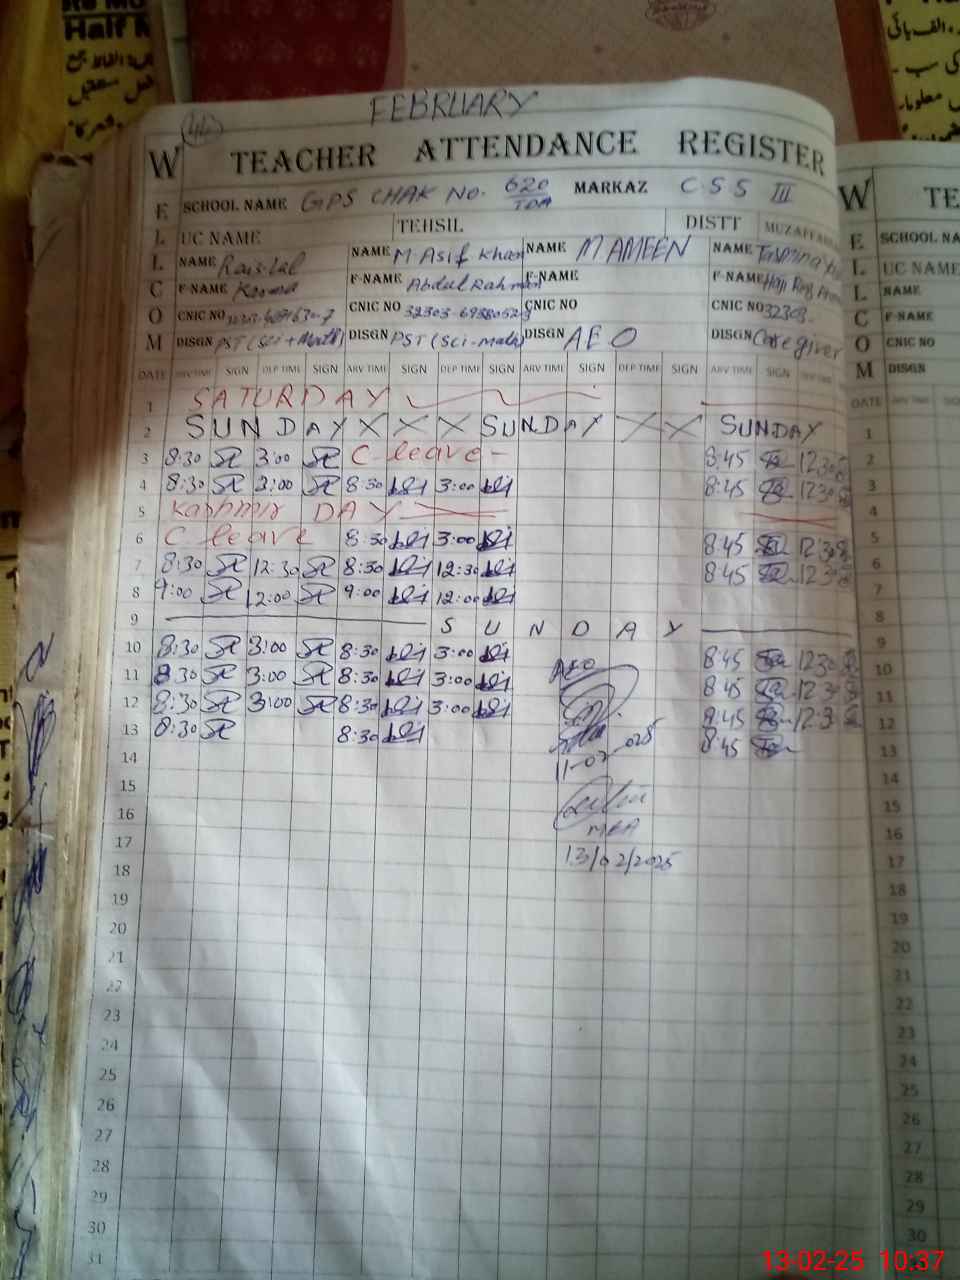 FEBRUARY
44
W TEACHER ATTENDANCE REGISTER
E SCHOOL NAME GPS CHAK No. 620/TDA MARKAZ C.S S III
L UC NAME TEHSIL DISTT MUZAFFAR
L NAME NAME M Asif Khan NAME M AMEEN NAME Tasmina
C F-NAME F-NAME Abdul Rahman F-NAME F-NAME Haji
O CNIC NO CNIC NO CNIC NO CNIC NO 32303-
M DISGN PST (Sci+Math) DISGN PST (Sci-math) DISGN AEO DISGN Care giver
DATE ARV TIME SIGN DEP TIME SIGN ARV TIME SIGN DEP TIME SIGN ARV TIME SIGN DEP TIME SIGN ARV TIME SIGN DEP TIME
1 SATURDAY
2 SUNDAY X X X SUNDAY X X SUNDAY
3 8:30 3:00 C leave - 8:45 12:30
4 8:30 3:00 8:30 3:00 8:45 12:30
5 Kashmir DAY
6 C leave 8:30 3:00 8:45 12:30
7 8:30 12:30 8:30 12:30 8:45 12:3
8 9:00 12:00 9:00 12:00
9 SUNDAY
10 8:30 3:00 8:30 3:00 8:45 12:30
11 8:30 3:00 8:30 3:00 AEO 8:45 12:3
12 8:30 3:00 8:30 3:00 8:45 12:3
13 8:30 8:30 8:45
11-02-025
14
15
16
MEA
17
13/02/2025
18
19
20
21
22
23
24
25
26
27
28
29
30
31
W TE
E SCHOOL NA
L UC NAME
L NAME
C F-NAME
O CNIC NO
M DISGN
DATE ARV TIME
1
2
3
4
5
6
7
8
9
10
11
12
13
14
15
16
17
18
19
20
21
22
23
24
25
26
27
28
29
30
13-02-25 10:37